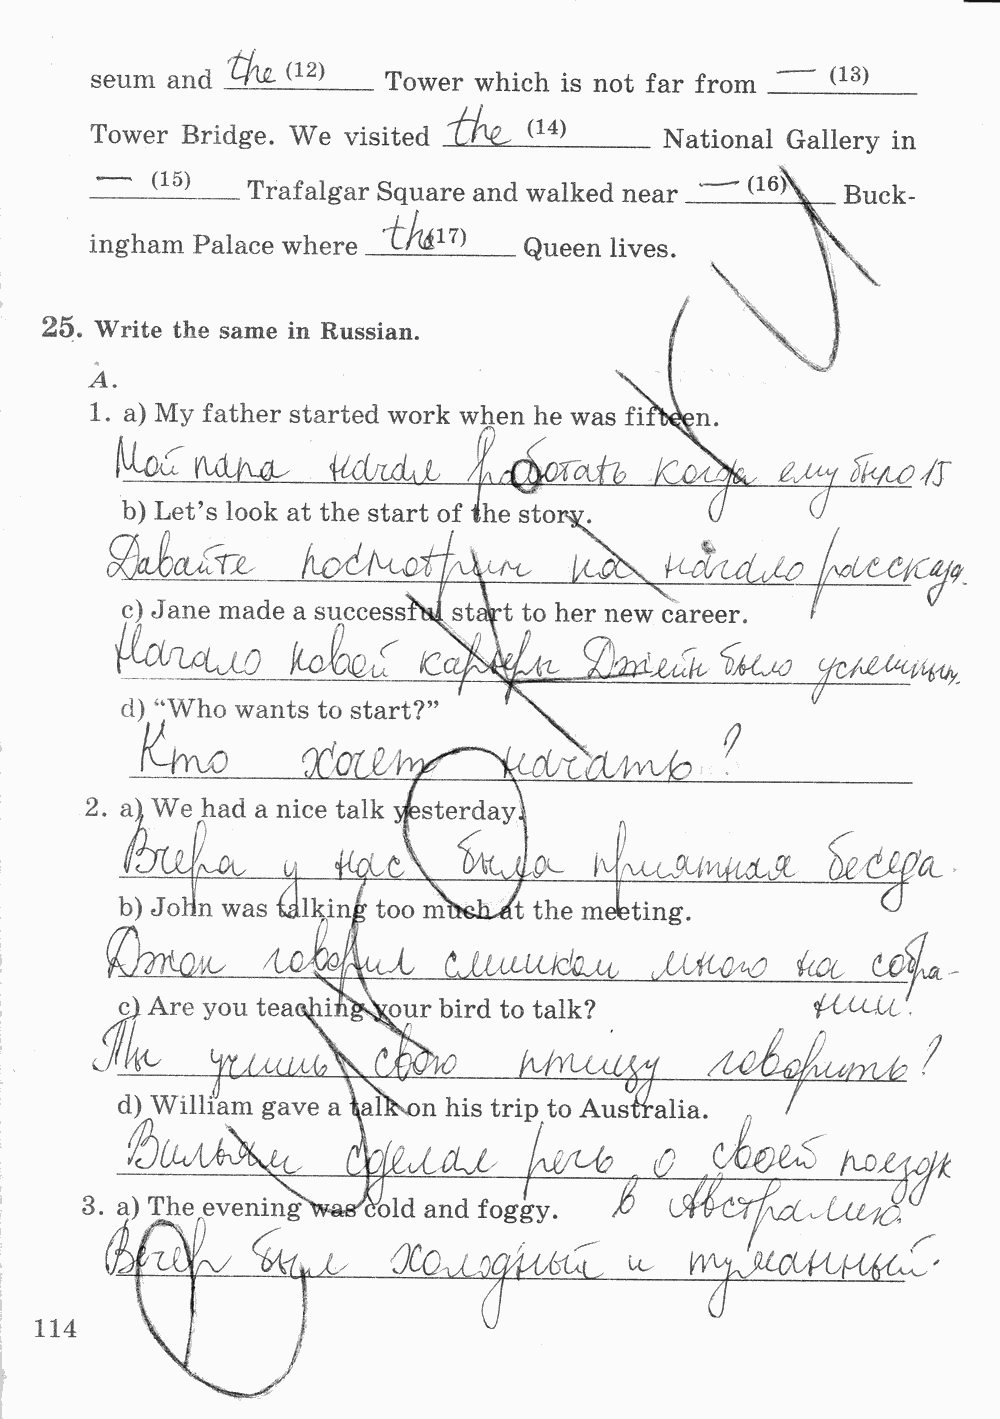 seum and the (12) Tower which is not far from — (13)
Tower Bridge. We visited the (14) National Gallery in
— (15) Trafalgar Square and walked near — (16) Buck-
ingham Palace where the (17) Queen lives.
25. Write the same in Russian.
A.
1. a) My father started work when he was fifteen.
Мой папа начал работать когда ему было 15
b) Let's look at the start of the story.
Давайте посмотрим на начало рассказа.
c) Jane made a successful start to her new career.
Начало новой карьеры Джейн было успешным.
d) “Who wants to start?”
Кто хочет начать?
2. a) We had a nice talk yesterday.
Вчера у нас была приятная беседа.
b) John was talking too much at the meeting.
Джон говорил слишком много на собра-
нии.
c) Are you teaching your bird to talk?
Ты учишь свою птицу говорить?
d) William gave a talk on his trip to Australia.
Вильям сделал речь о своей поездк
в Австралию.
3. a) The evening was cold and foggy.
Вечер был холодный и туманный.
114